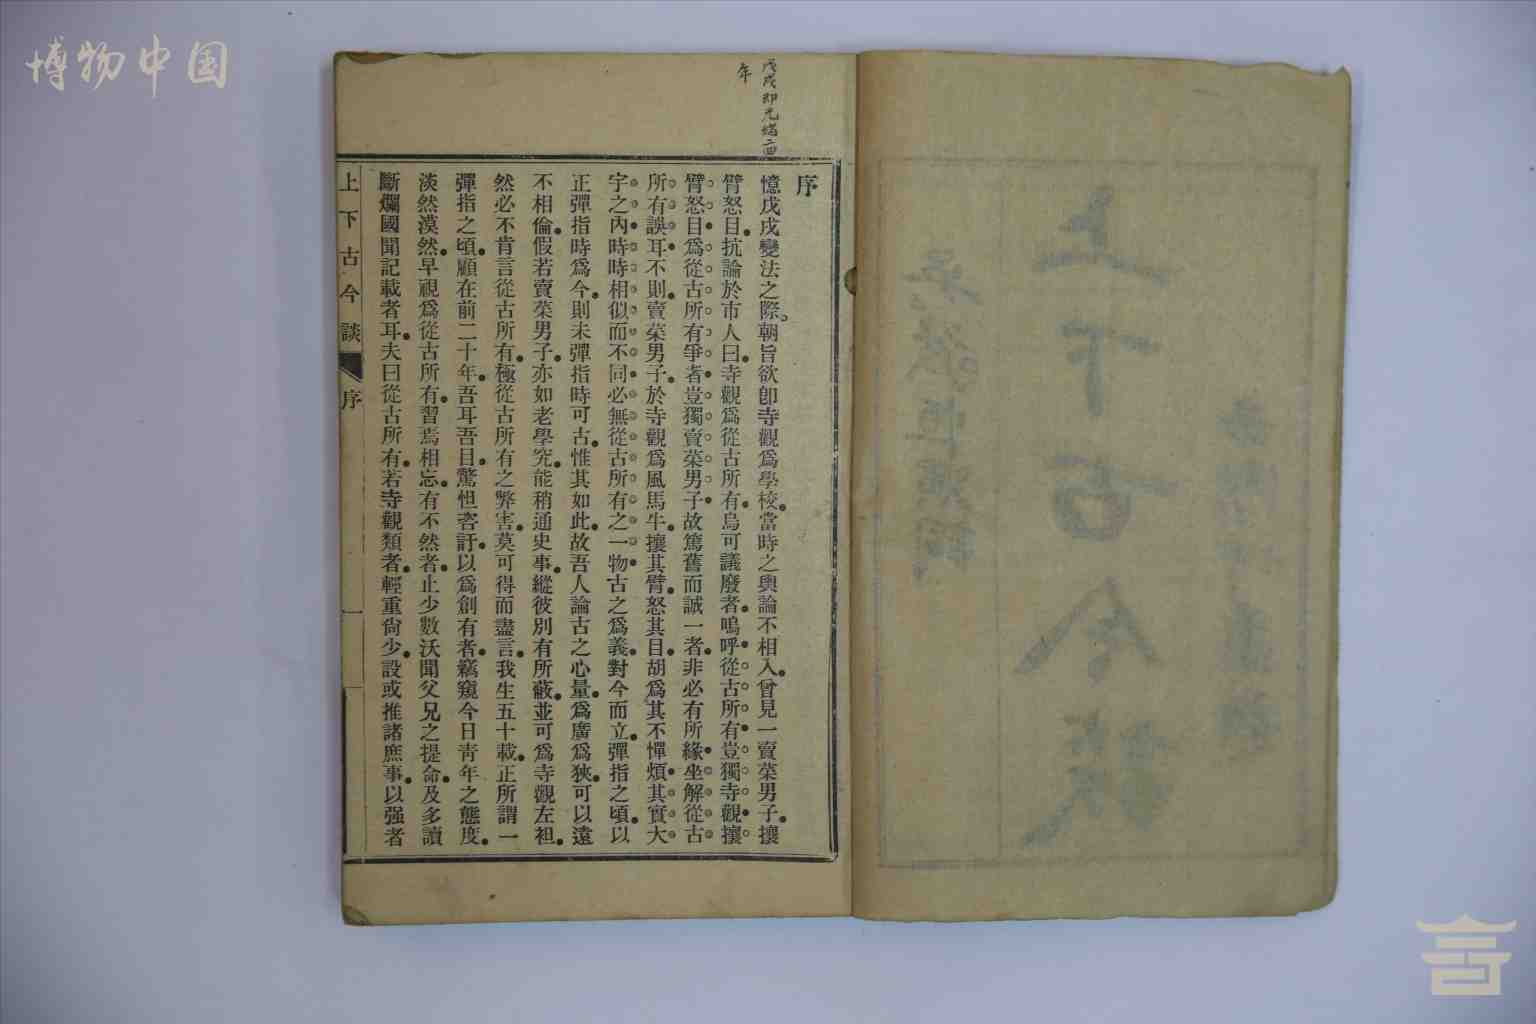 博物中国
上下古今談
戊戌卽光緒二四
年
序
憶戊戌變法之際。朝旨欲卽寺觀爲學校。當時之輿論不相入。曾見一賣菜男子。攘
臂怒目。抗論於市人曰。寺觀爲從古所有。烏可議廢者。嗚呼。從古所有。豈獨寺觀。攘
臂怒目。爲從古所有爭者。豈獨賣菜男子。故篤舊而誠一者。非必有所緣坐。解從古
所有誤耳。不則。賣菜男子。於寺觀爲風馬牛。攘其臂。怒其目。胡爲其不憚煩。其實大
宇之內。時時相似而不同。必無從古所有之一物。古之爲義。對今而立。彈指之頃。以
正彈指時爲今。則未彈指時可古。惟其如此。故吾人論古之心量。爲廣爲狹。可以遠
不相倫。假若賣菜男子。亦如老學究。能稍通史事。縱彼別有所蔽。並可爲寺觀左袒。
然必不肯言從古所有。極從古所有之弊害。莫可得而盡言。我生五十載。正所謂一
彈指之頃。顧在前二十年。吾耳吾目。驚怛咨訝。以爲創有者。竊窺今日靑年之態度。
淡然漠然。早視爲從古所有。習焉相忘。有不然者。止少數沃聞父兄之提命。及多讀
斷爛國聞記載者耳。夫曰從古所有。若寺觀類者。輕重尙少。設或推諸庶事。以强者
上下古今談 序 一